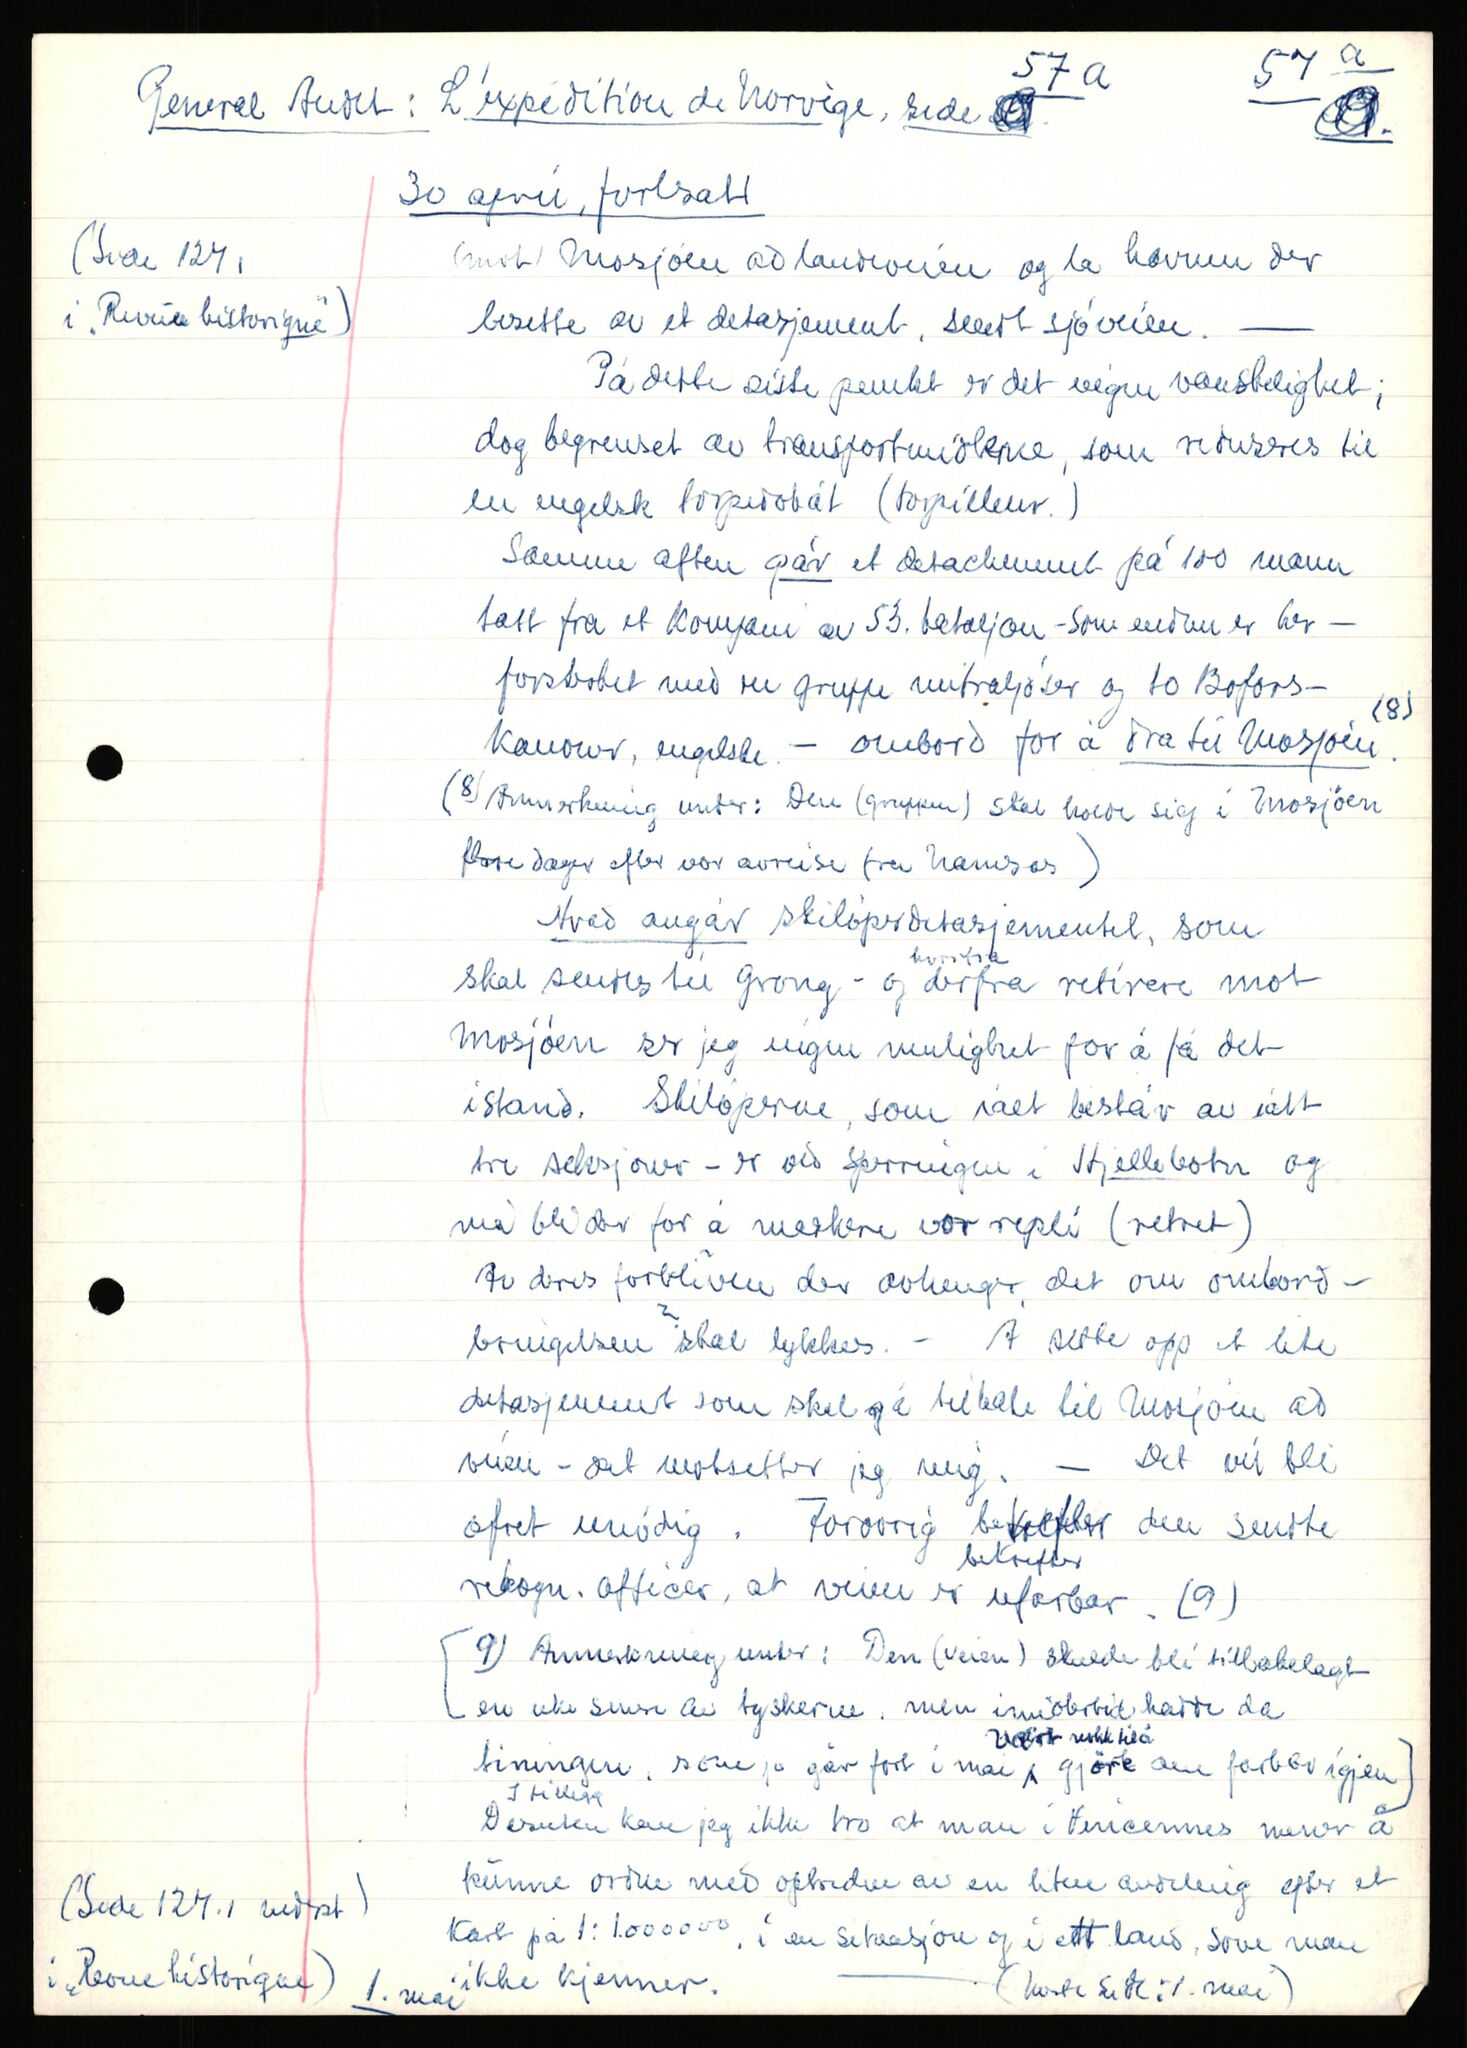 57 a
57 a
General Audet: L'éxpédition de Norvège, side
30 april, fortsatt
(Side 127,
i "Revue historique")
(mot) Mosjöen ad landeveien og la havnen der
besette av et detasjement, sendt sjöveien. —
På dette siste punkt er det ingen vanskelighet;
dog begrenset av transportmidlerne, som reduseres til
en engelsk torpedobåt (torpilleur.)
Samme aften går et detachement på 100 mann
tatt fra et Kompani av 53. bataljon - som endnu er her —
forsterket med en gruppe mitraljöser og to Bofors-
kanoner, engelske. — ombord for å dra til Mosjöen. (8)
(8) Anmerkning under: Den (gruppen) skal holde sig i Mosjöen
flere dager efter vor avreise fra Namsos)
Hvad angår skilöperdetasjementet, som
skal sendes til Grong - og derfra retirere mot
herfra
Mosjöen ser jeg ingen mulighet for å få det
istand. Skilöperne, som i alt består av ialt
tre seksjoner - er ved sperringen i Hjellebotn og
må bli der for å maskere vor repli (retret)
Av deres forbliven der avhenger det om ombord-
bringelsen skal lykkes. - Å sette opp et lite
detasjement som skal gå tilbake til Mosjöen ad
veien - det motsetter jeg mig. — Det vil bli
ofret unödig. Forövrig bekrefter den sendte
bekrefter
rekogn. officer, at veien er ufarbar. (9)
9) Anmerkning under: Den (veien) skulde bli tilbakelagt
en uke senere av tyskerne, men imidlertid hadde da
tiningen, som jo går fort i mai, gjöre den farbar igjen)
vært nokk til å
I tillegg
Desuten kan jeg ikke tro at man i Vincennes mener å
kunne ordne med optreden av en liten avdeling efter et
kart på 1:1.000000, i en situasjon og i ett land, som man
ikke kjenner.
(Side 127.1 nederst)
i "Revue historique)
1. mai
(neste side: 1. mai)